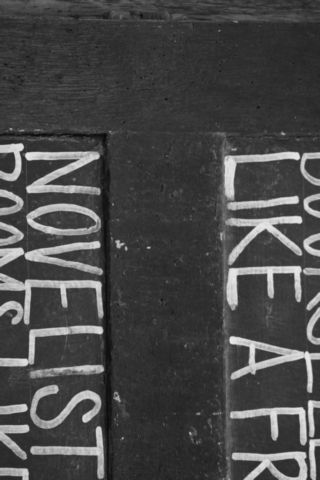 LIKE A FR
NOVELIST
ROOMS LIKE